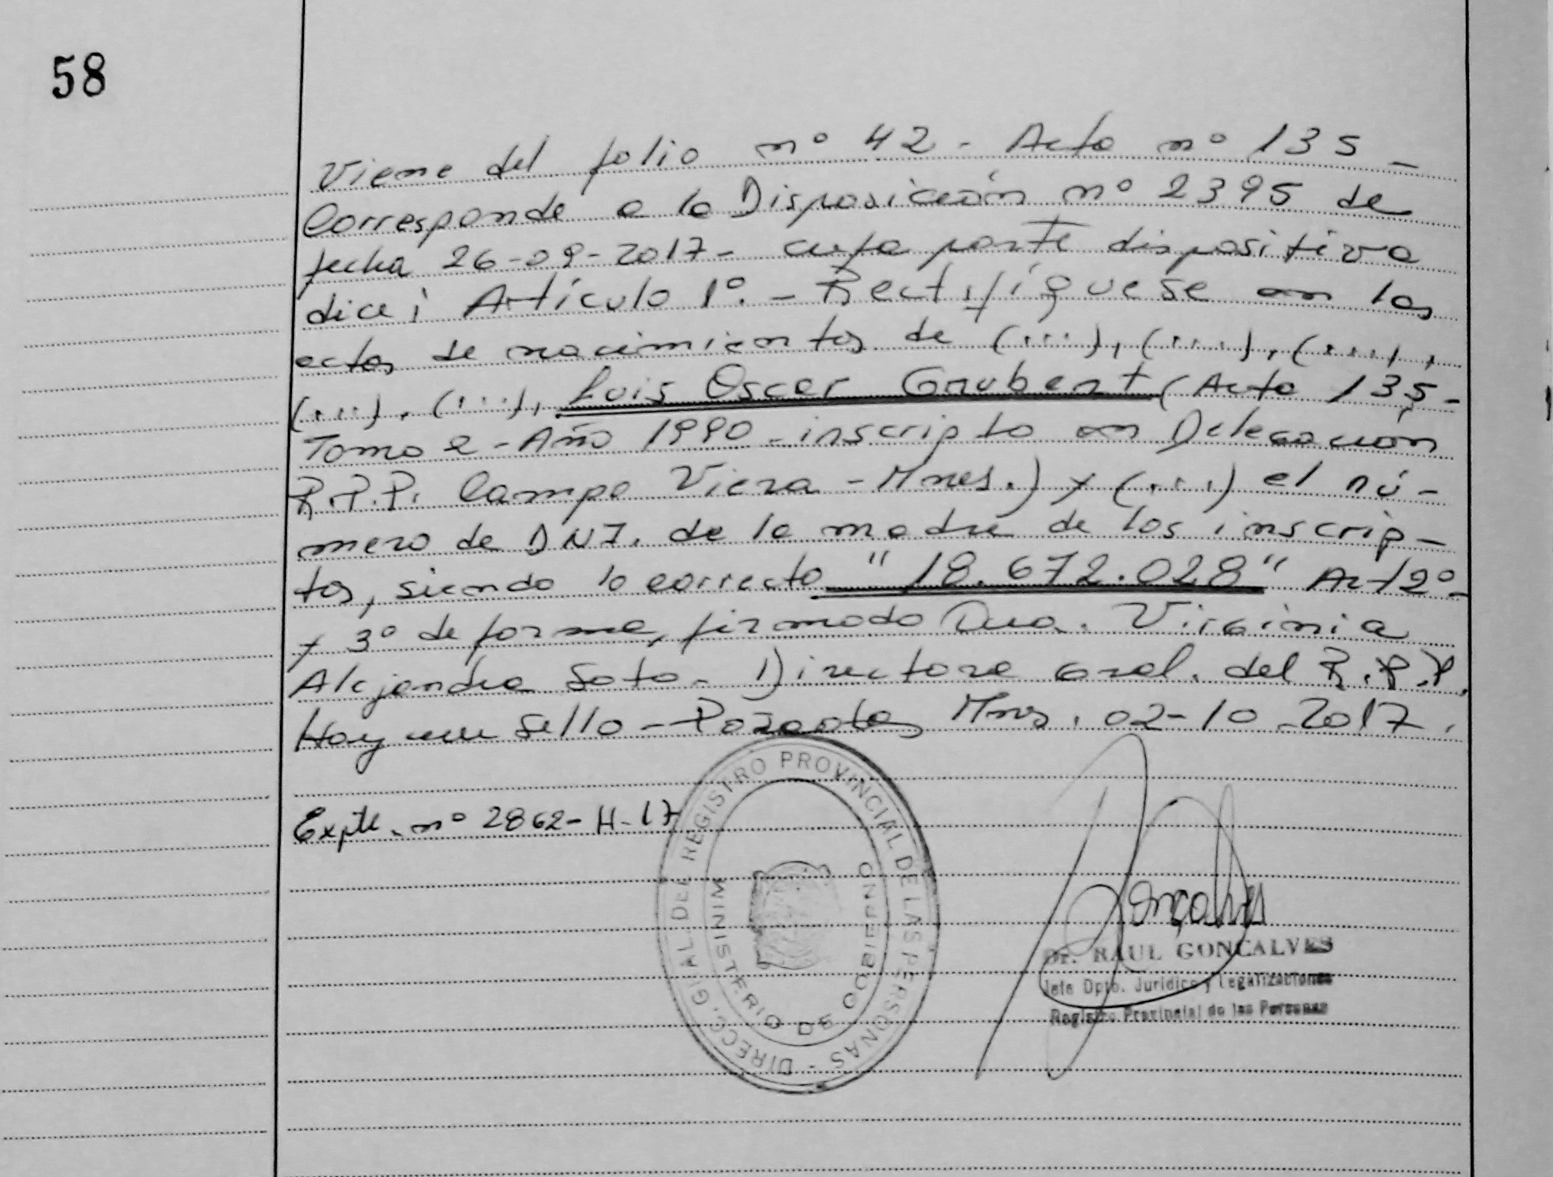 58
Viene del folio nº 42 - Acta nº 135 -
Corresponde a la Disposición nº 2395 de
fecha 26-09-2017 - cuya parte dispositiva
dice: Artículo 1º. - Rectifíquese en las
actas de nacimientos de (...), (...), (...),
(...), (...), Luis Oscar Graubert (Acta 135 -
Tomo 2 - Año 1990 - inscripto en Delegación
R.P.P. Campo Viera - Mnes.) y (...) el nú-
mero de DNI. de la madre de los inscrip-
tos, siendo lo correcto "18.672.028" Art 2º -
y 3º de forma, firmado Dra. Virginia
Alejandra Soto - Directora Gral. del R.P.P.
Hay un sello - Posadas, Mnes. 02-10-2017.
Expte. nº 2862-H-17
DIRECC. GRAL. DEL REGISTRO PROVINCIAL DE LAS PERSONAS -
MINISTERIO DE GOBIERNO
Gonçalves
Dr. RAUL GONCALVES
Jefe Dpto. Jurídico y Legalizaciones
Registro Provincial de las Personas